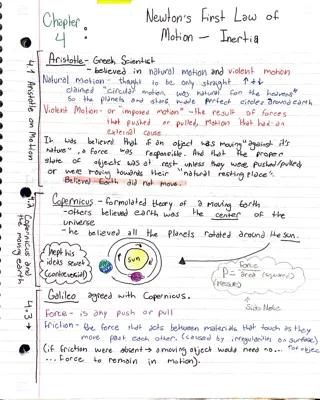 Chapter 4:
Newton's First Law of
Motion — Inertia
4.1 Aristotle on Motion
Aristotle - Greek Scientist
- believed in natural motion and violent motion
Natural motion - thought to be only straight ↑↓
claimed "circular motion was natural for the heavens"
So the planets and stars made perfect circles around earth
Violent Motion - or "imposed motion" - the result of forces
that pushed or pulled, Motion that had an
external cause
It was believed that if an object was moving "against it's
nature", a force was responsible. And that the proper
state of objects was at rest unless they were pushed/pulled
or were moving towards their "natural resting place".
Believed Earth did not move.
Copernicus and the moving earth
Copernicus - formulated theory of a moving earth
- others believed earth was the center of the
universe
- he believed all the planets rotated around the sun.
kept his
ideas secret
(controversial)
sun
force
P = area (squared)
Side Note
4.3 →
Galileo agreed with Copernicus.
Force - is any push or pull
friction - the force that acts between materials that touch as they
move past each other. (caused by irregularities on surface)
(if friction were absent → a moving object would need no...
... force to remain in motion).